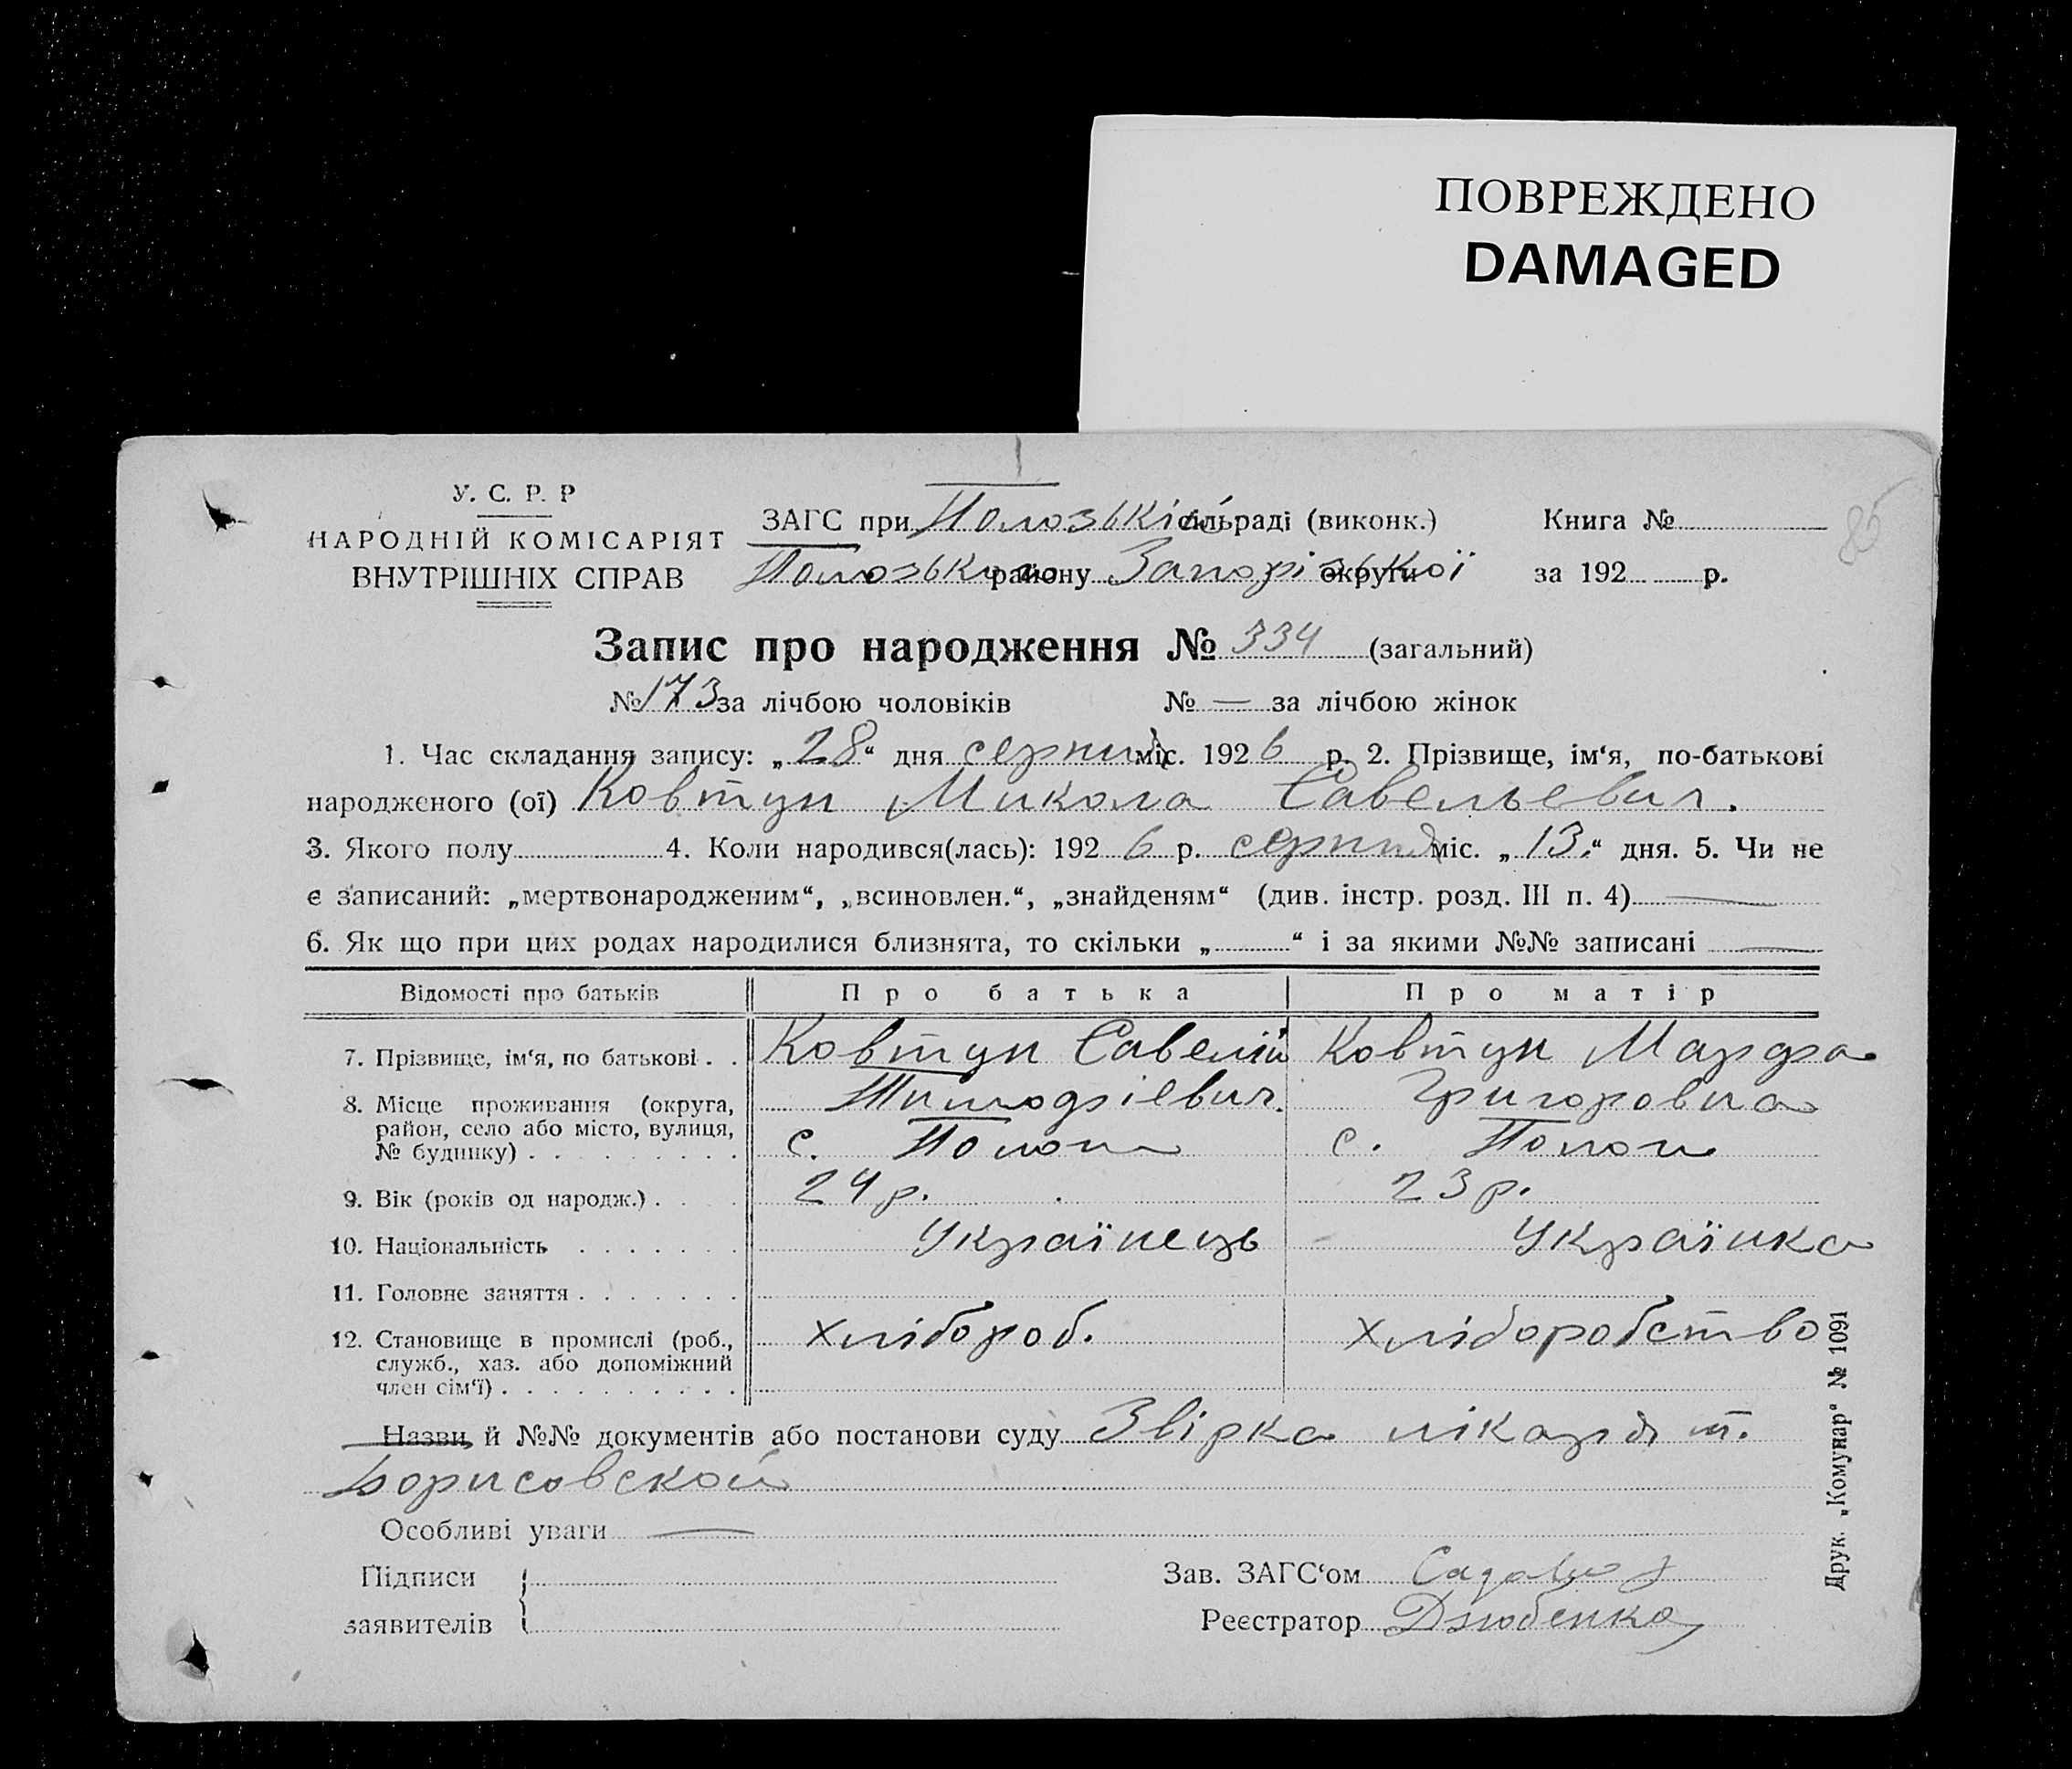 ПОВРЕЖДЕНО
DAMAGED
85
У. С. Р. Р
НАРОДНІЙ КОМІСАРІЯТ
ВНУТРІШНІХ СПРАВ
ЗАГС при Пологській сільраді (виконк.)
Книга №
Пологського району Запорізької округи
за 192 р.
Запис про народження № 334 (загальний)
№ 173 за лічбою чоловіків № — за лічбою жінок
1. Час складання запису: „28“ дня серпня міс. 1926 р. 2. Прізвище, ім‘я, по-батькові
народженого (ої) Ковтун Микола Савельевич.
3. Якого полу 4. Коли народився(лась): 1926 р. серпня міс. „13.“ дня. 5. Чи не
є записаний: „мертвонародженим“, „всиновлен.“, „знайденям“ (див. інстр. розд. III п. 4) —
6. Як що при цих родах народилися близнята, то скільки „ “ і за якими №№ записані —
Відомості про батьків Про батька Про матір
7. Прізвище, ім‘я, по батькові . . Ковтун Савелій Ковтун Марфа
Тимофієвич. Григоровна
8. Місце проживання (округа,
район, село або місто, вулиця,
№ будинку) . . . . . . . . . с. Пологи с. Пологи
9. Вік (років од народж.) . . . . 24 р. 23 р.
10. Національність . . . . . . . Українець Українка
11. Головне заняття . . . . . . .
12. Становище в промислі (роб.,
служб., хаз. або допоміжний
член сім‘ї) . . . . . . . . . . хлібороб. хліборобство
Назви й №№ документів або постанови суду Звірка лікаря т.
Борисовской
Особливі уваги —
Підписи
заявителів
Зав. ЗАГС‘ом
Реєстратор Дзюбенко
Друк. „Комунар“ № 1091